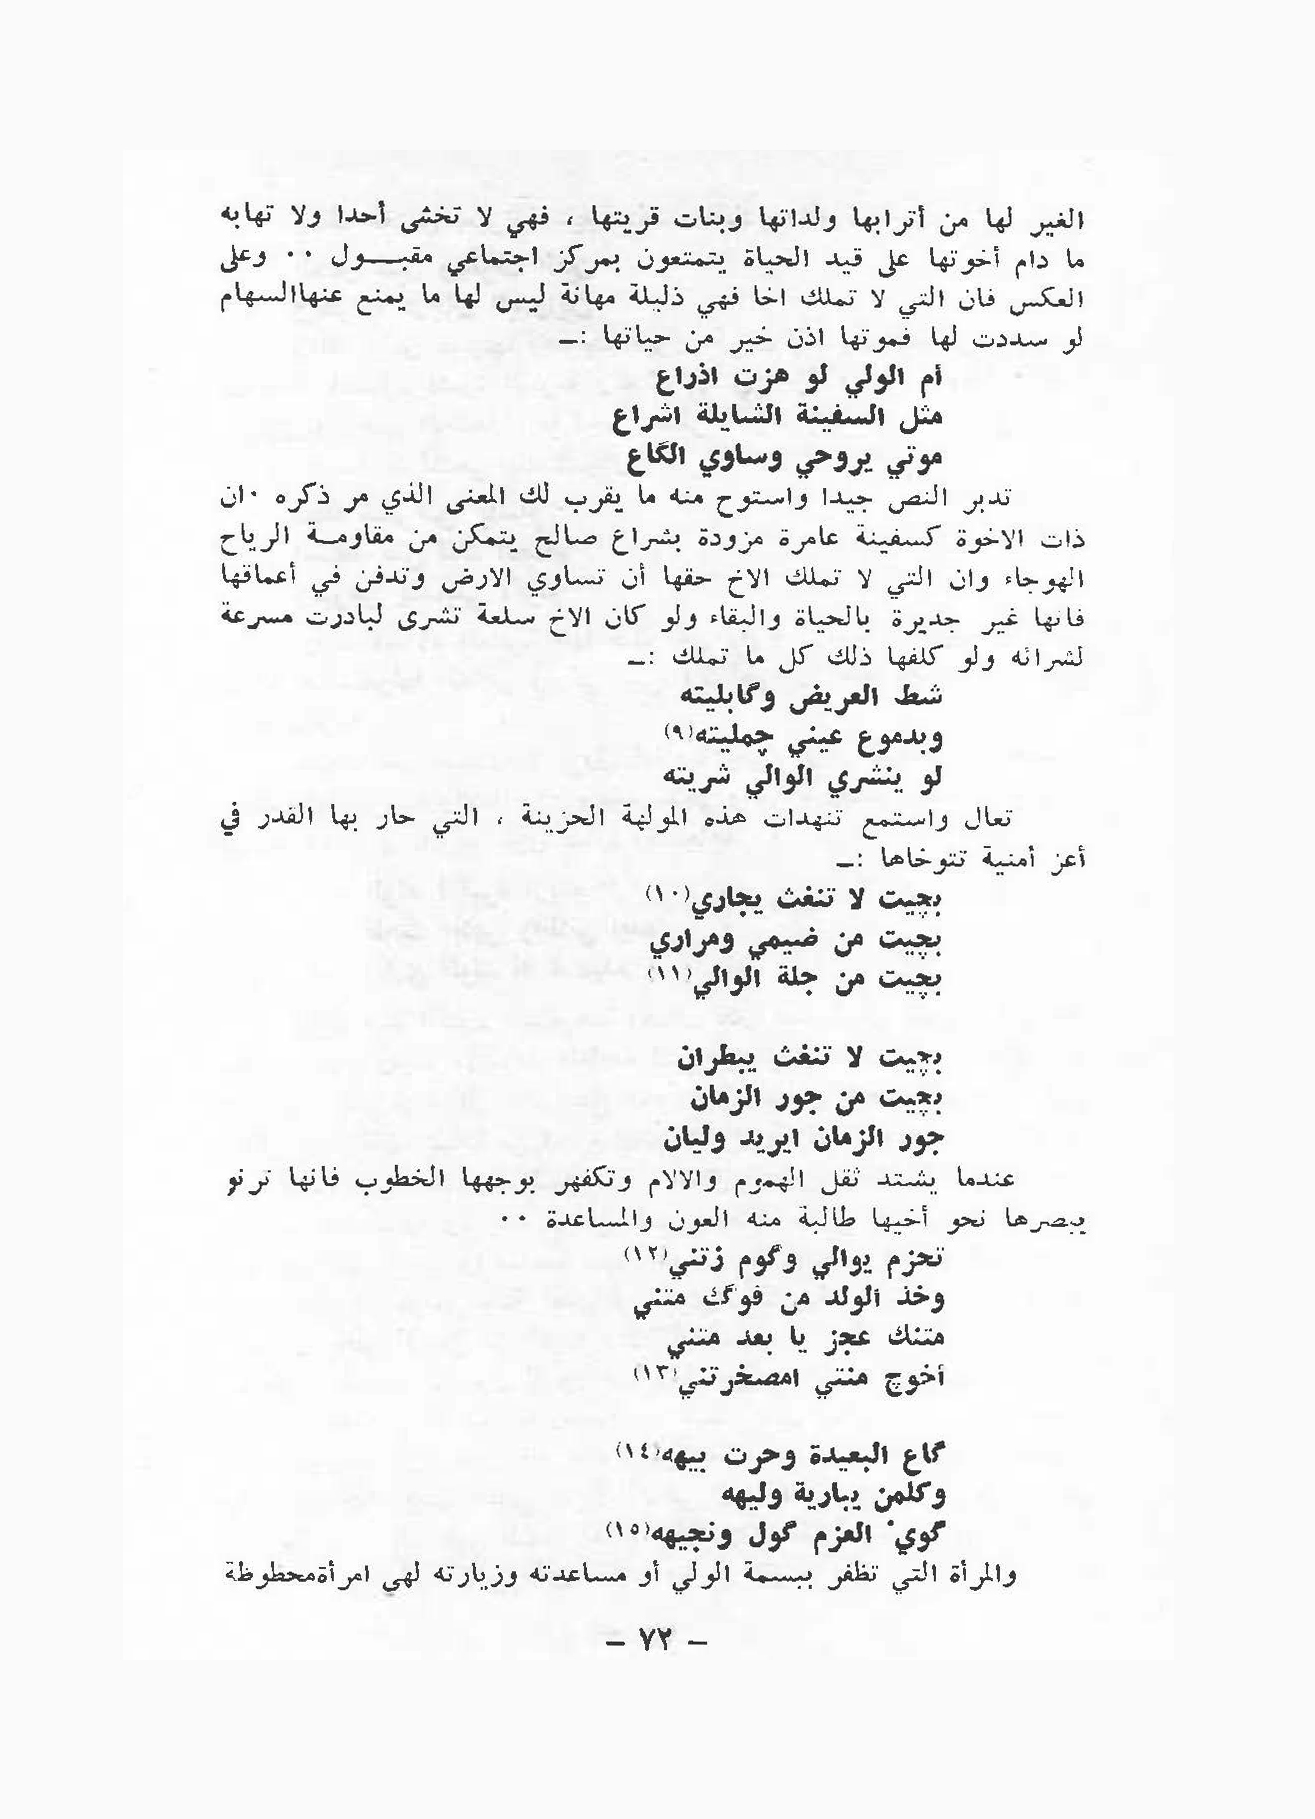 الغير لها من أترابها ولداتها وبنات قريتها ، فهي لا تخشى أحدا ولا تهابه
ما دام أخوتها على قيد الحياة يتمتعون بمركز اجتماعي مقبـــول ٠٠ وعلى
العكس فان التي لا تملك اخا فهي ذليلة مهانة ليس لها ما يمنع عنهاالسهام
لو سددت لها فموتها اذن خير من حياتها :ــ
أم الولي لو هزت اذراع
مثل السفينة الشايلة اشراع
موتي يروحي وساوي الگاع
تدبر النص جيدا واستوح منه ما يقرب لك المعنى الذي مر ذكره ٠ان
ذات الاخوة كسفينة عامرة مزودة بشراع صالح يتمكن من مقاومـة الرياح
الهوجاء وان التي لا تملك الاخ حقها أن تساوي الارض وتدفن في أعماقها
فانها غير جديرة بالحياة والبقاء ولو كان الاخ سلعة تشرى لبادرت مسرعة
لشرائه ولو كلفها ذلك كل ما تملك :ــ
شط العريض وگابليته
وبدموع عيني چمليته(٩)
لو ينشري الوالي شريته
تعال واستمع تنهدات هذه المولهة الحزينة ، التي حار بها القدر في
أعز أمنية تتوخاها :ــ
بچيت لا تنغث يجاري(١٠)
بچيت من ضيمي ومراري
بچيت من جلة الوالي(١١)
بچيت لا تنغث يبطران
بچيت من جور الزمان
جور الزمان ايريد وليان
عندما يشتد ثقل الهموم والالام وتكفهر بوجهها الخطوب فانها ترنو
ببصرها نحو أخيها طالبة منه العون والمساعدة ٠٠
تحزم يوالي وگوم زتني(١٢)
وخذ الولد من فوگك متني
متنك عجز يا بعد متني
أخوچ منتي امصخرتني(١٣)
گاع البعيدة وحرت بيهه(١٤)
وكلمن يبارية وليهه
گوي العزم گول ونجيهه(١٥)
والمرأة التي تظفر ببسمة الولي أو مساعدته وزيارته لهي امرأةمحظوظة
– ٧٢ –